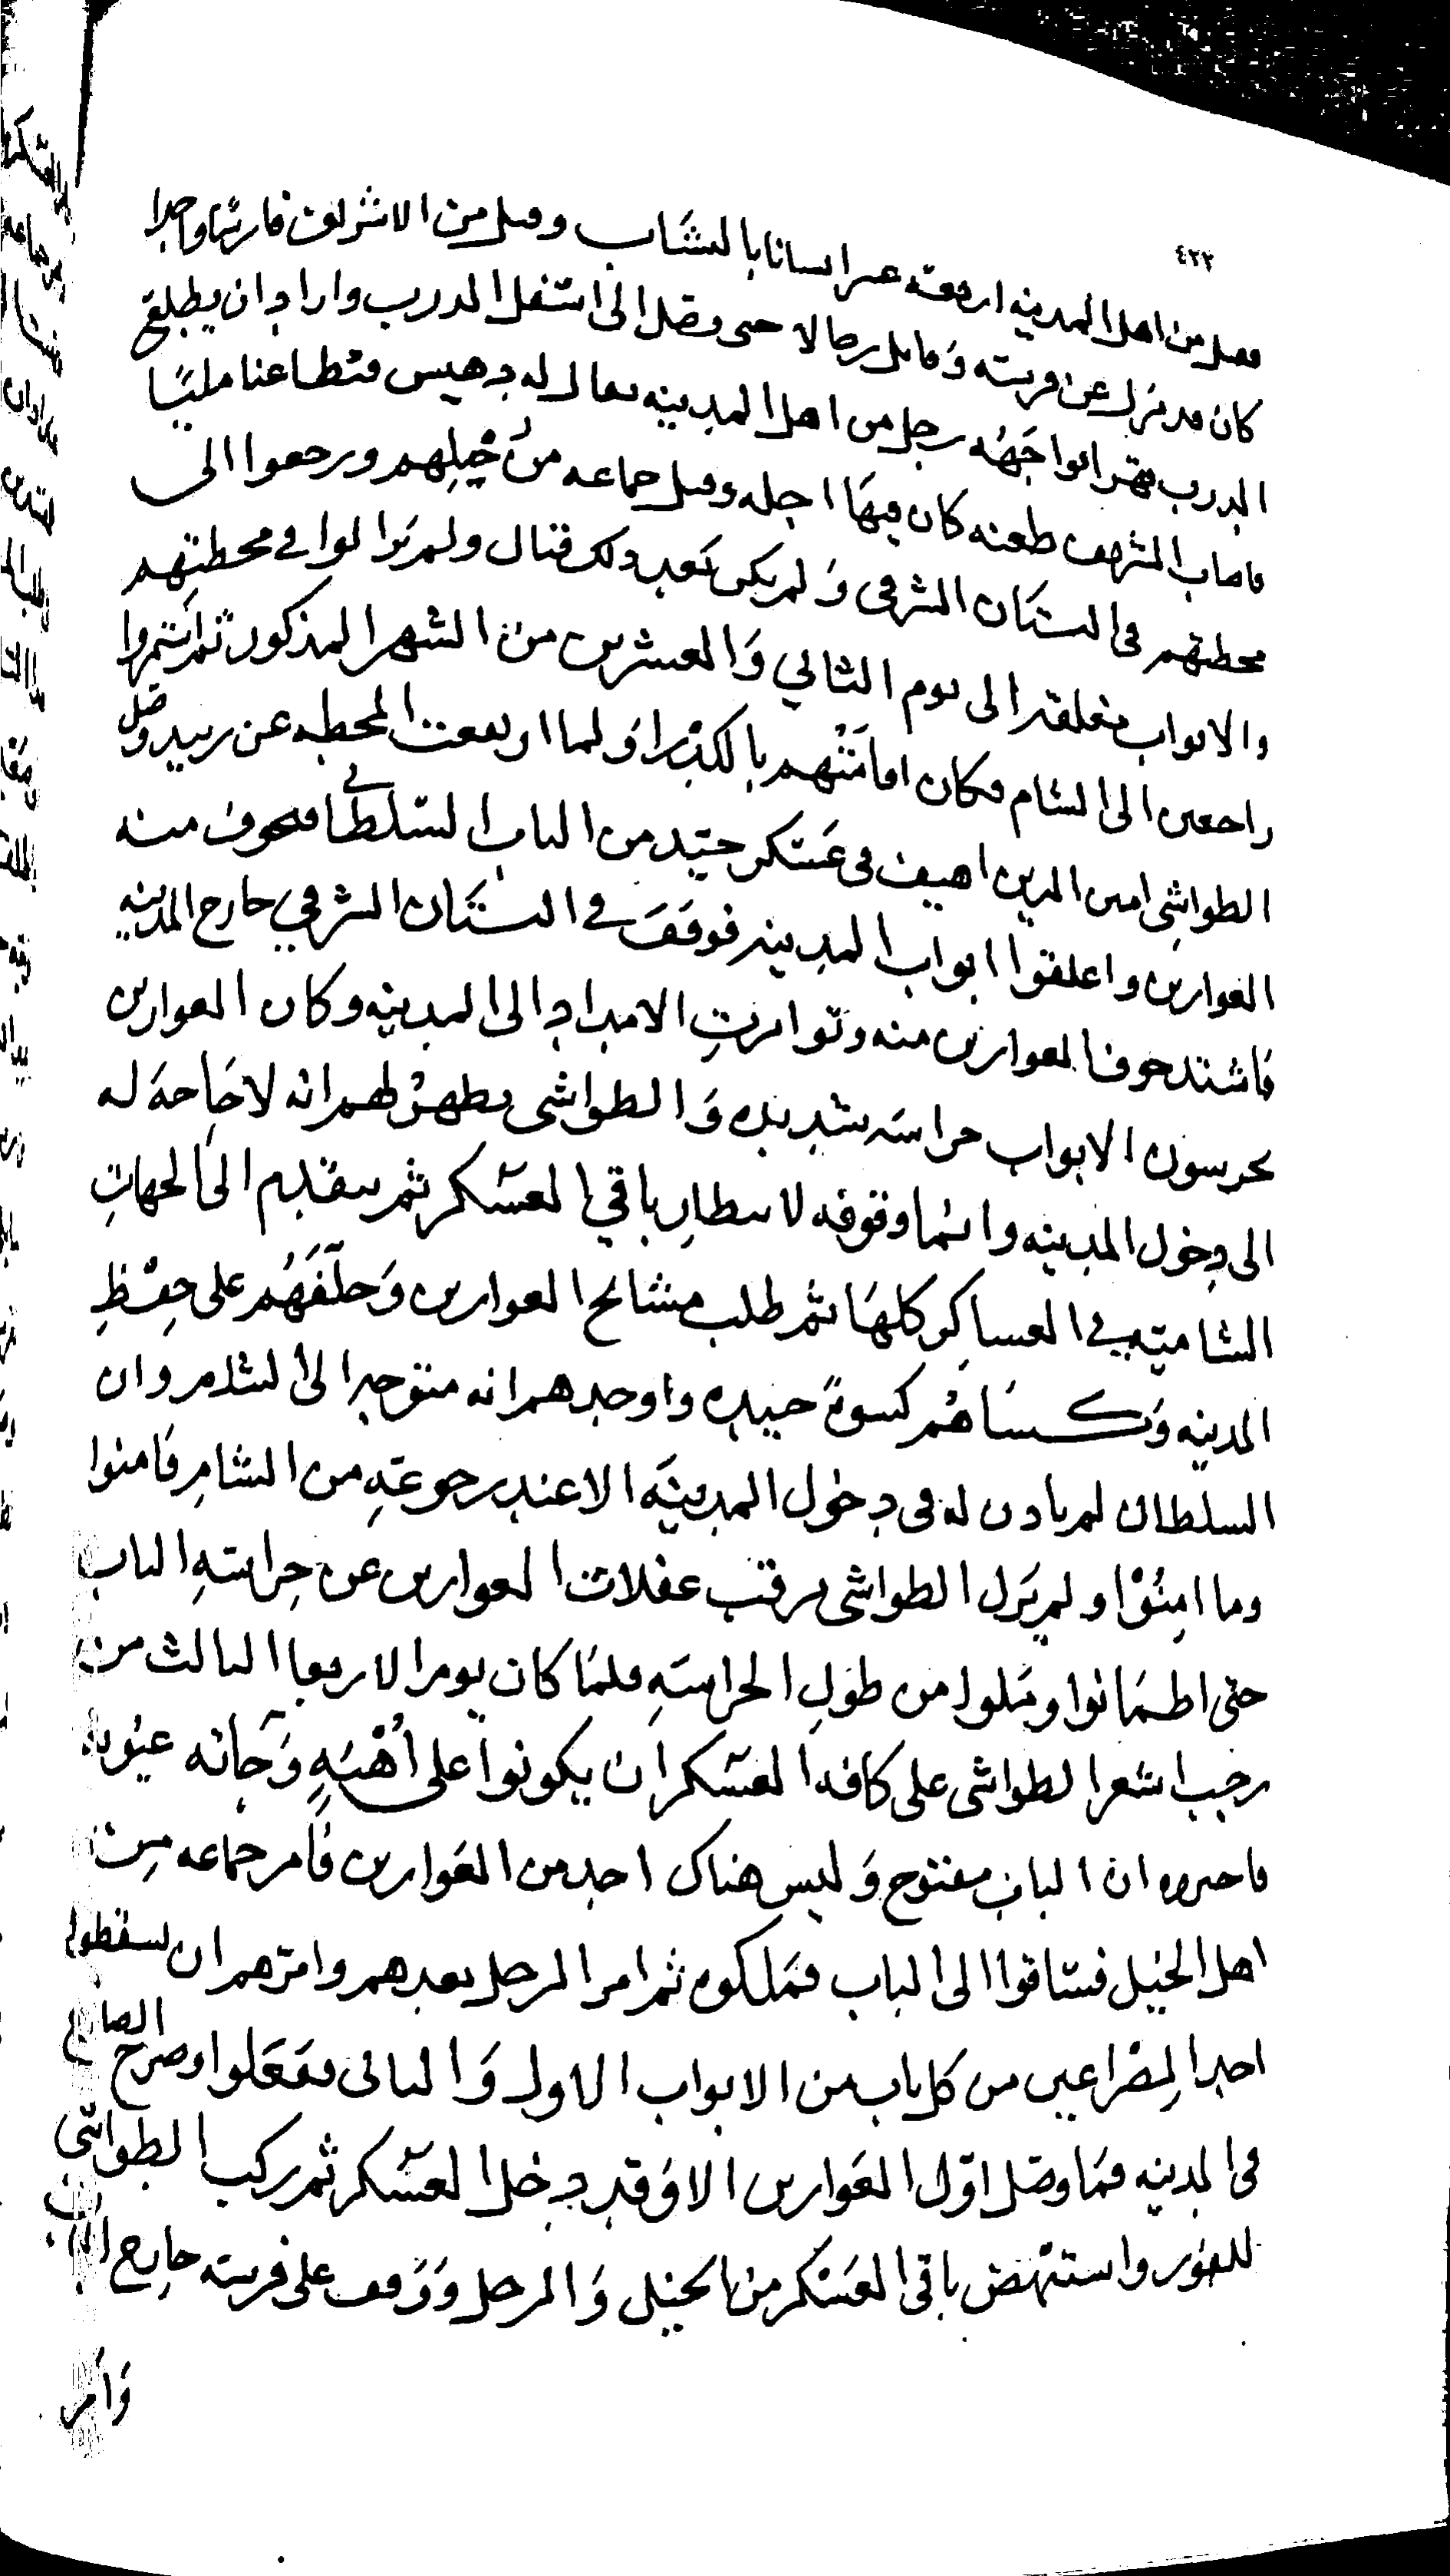 ٤٢٢
فقتل من اهل المدينه اربعة عشر انسانا بالنشاب وقتل من الاشراف فارسا واحدا
كان قد نزل عن فرسه وقاتل رجالا حتى وصل الى اسفل الدرب واراد ان يطلع
الدرب قهرا فواجهه رجل من اهل المدينه يقال له دهيس فتطاعنا مليا
فاصاب الشريف طعنه كان فيها اجله وقتل جماعه من خيلهم ورجعوا الى
محطتهم فى البستان الشرقى ولم يكن بعد ذلك قتال ولم يزالوا في محطتهم
والابواب مغلقة الى يوم الثاني والعشرين من الشهر المذكور ثم استمروا
راجعين الى الشام فكان اقامتهم بالكدرا ولما ارتفعت المحطه عن زبيد وصل
الطواشى امين الدين اهيف فى عسكر جيد من الباب السلطاني فخوف منه
العوارين واغلقوا ابواب المدينه فوقف في البستان الشرقي خارج المدينه
فاشتد خوف العوارين منه وتواترت الامداد الى المدينه وكان العوارين
يحرسون الابواب حراسه شديده والطواشى يظهر لهم انه لا حاجة له
الى دخول المدينه وانما وقوفه لانتظار باقي العسكر ثم يتقدم الى الجهات
الشاميه في العساكر كلها ثم طلب مشائخ العوارين وحلفهم على حفظ
المدينه وكساهم كسوة جيده واوجدهم انه متوجه الى الشام وان
السلطان لم ياذن له فى دخول المدينه الا عند رجوعه من الشام فامنوا
وما امنوا ولم يزل الطواشى يرقب غفلات العوارين عن حراسة الباب
حتى اطمانوا وملوا من طول الحراسه فلما كان يوم الاربعا الثالث من
رجب اشعر الطواشى على كافة العسكر ان يكونوا على أهبه وجاته عيونه
فاخبروه ان الباب مفتوح وليس هناك احد من العوارين فامر جماعه من
اهل الخيل فساقوا الى الباب فملكوه ثم امر الرجل بعدهم وامرهم ان يسقطوا
احد المصراعين من كل باب من الابواب الاول والثانى ففعلوا وصرخ الصارخ
فى المدينه فما وصل اول العوارين الا وقد دخل العسكر ثم ركب الطواشى
للفور واستنهض باقى العسكر من الخيل والرجل ووقف على فرسه خارج الباب
وامر